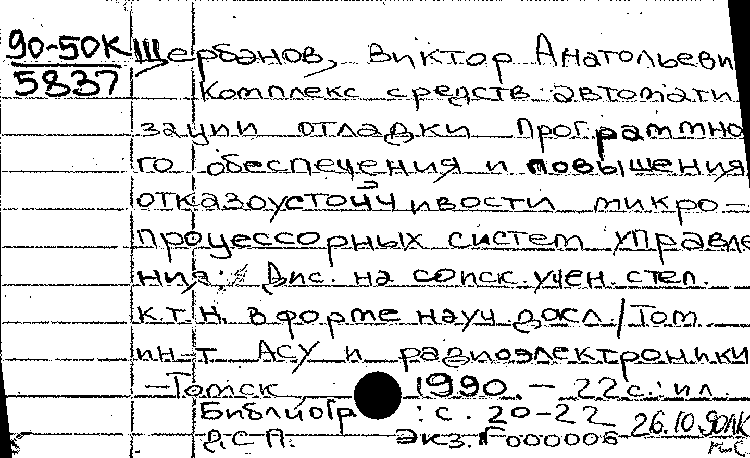 90-50К Щербанов, Виктор Анатольеви
5837 Комплекс средств автомати
зации отладки программно
го обеспечения и повышения
отказоустойчивости микро-
процессорных систем управле
ния: Дис. на соиск. учен. степ.
к.т.н. в форме науч. докл./Том.
ин-т АСУ и радиоэлектроники
—Томск 1990. — 22с.: ил.
Библиогр : с. 20-22
Д.С.П. Экз. 000006 26.10.90